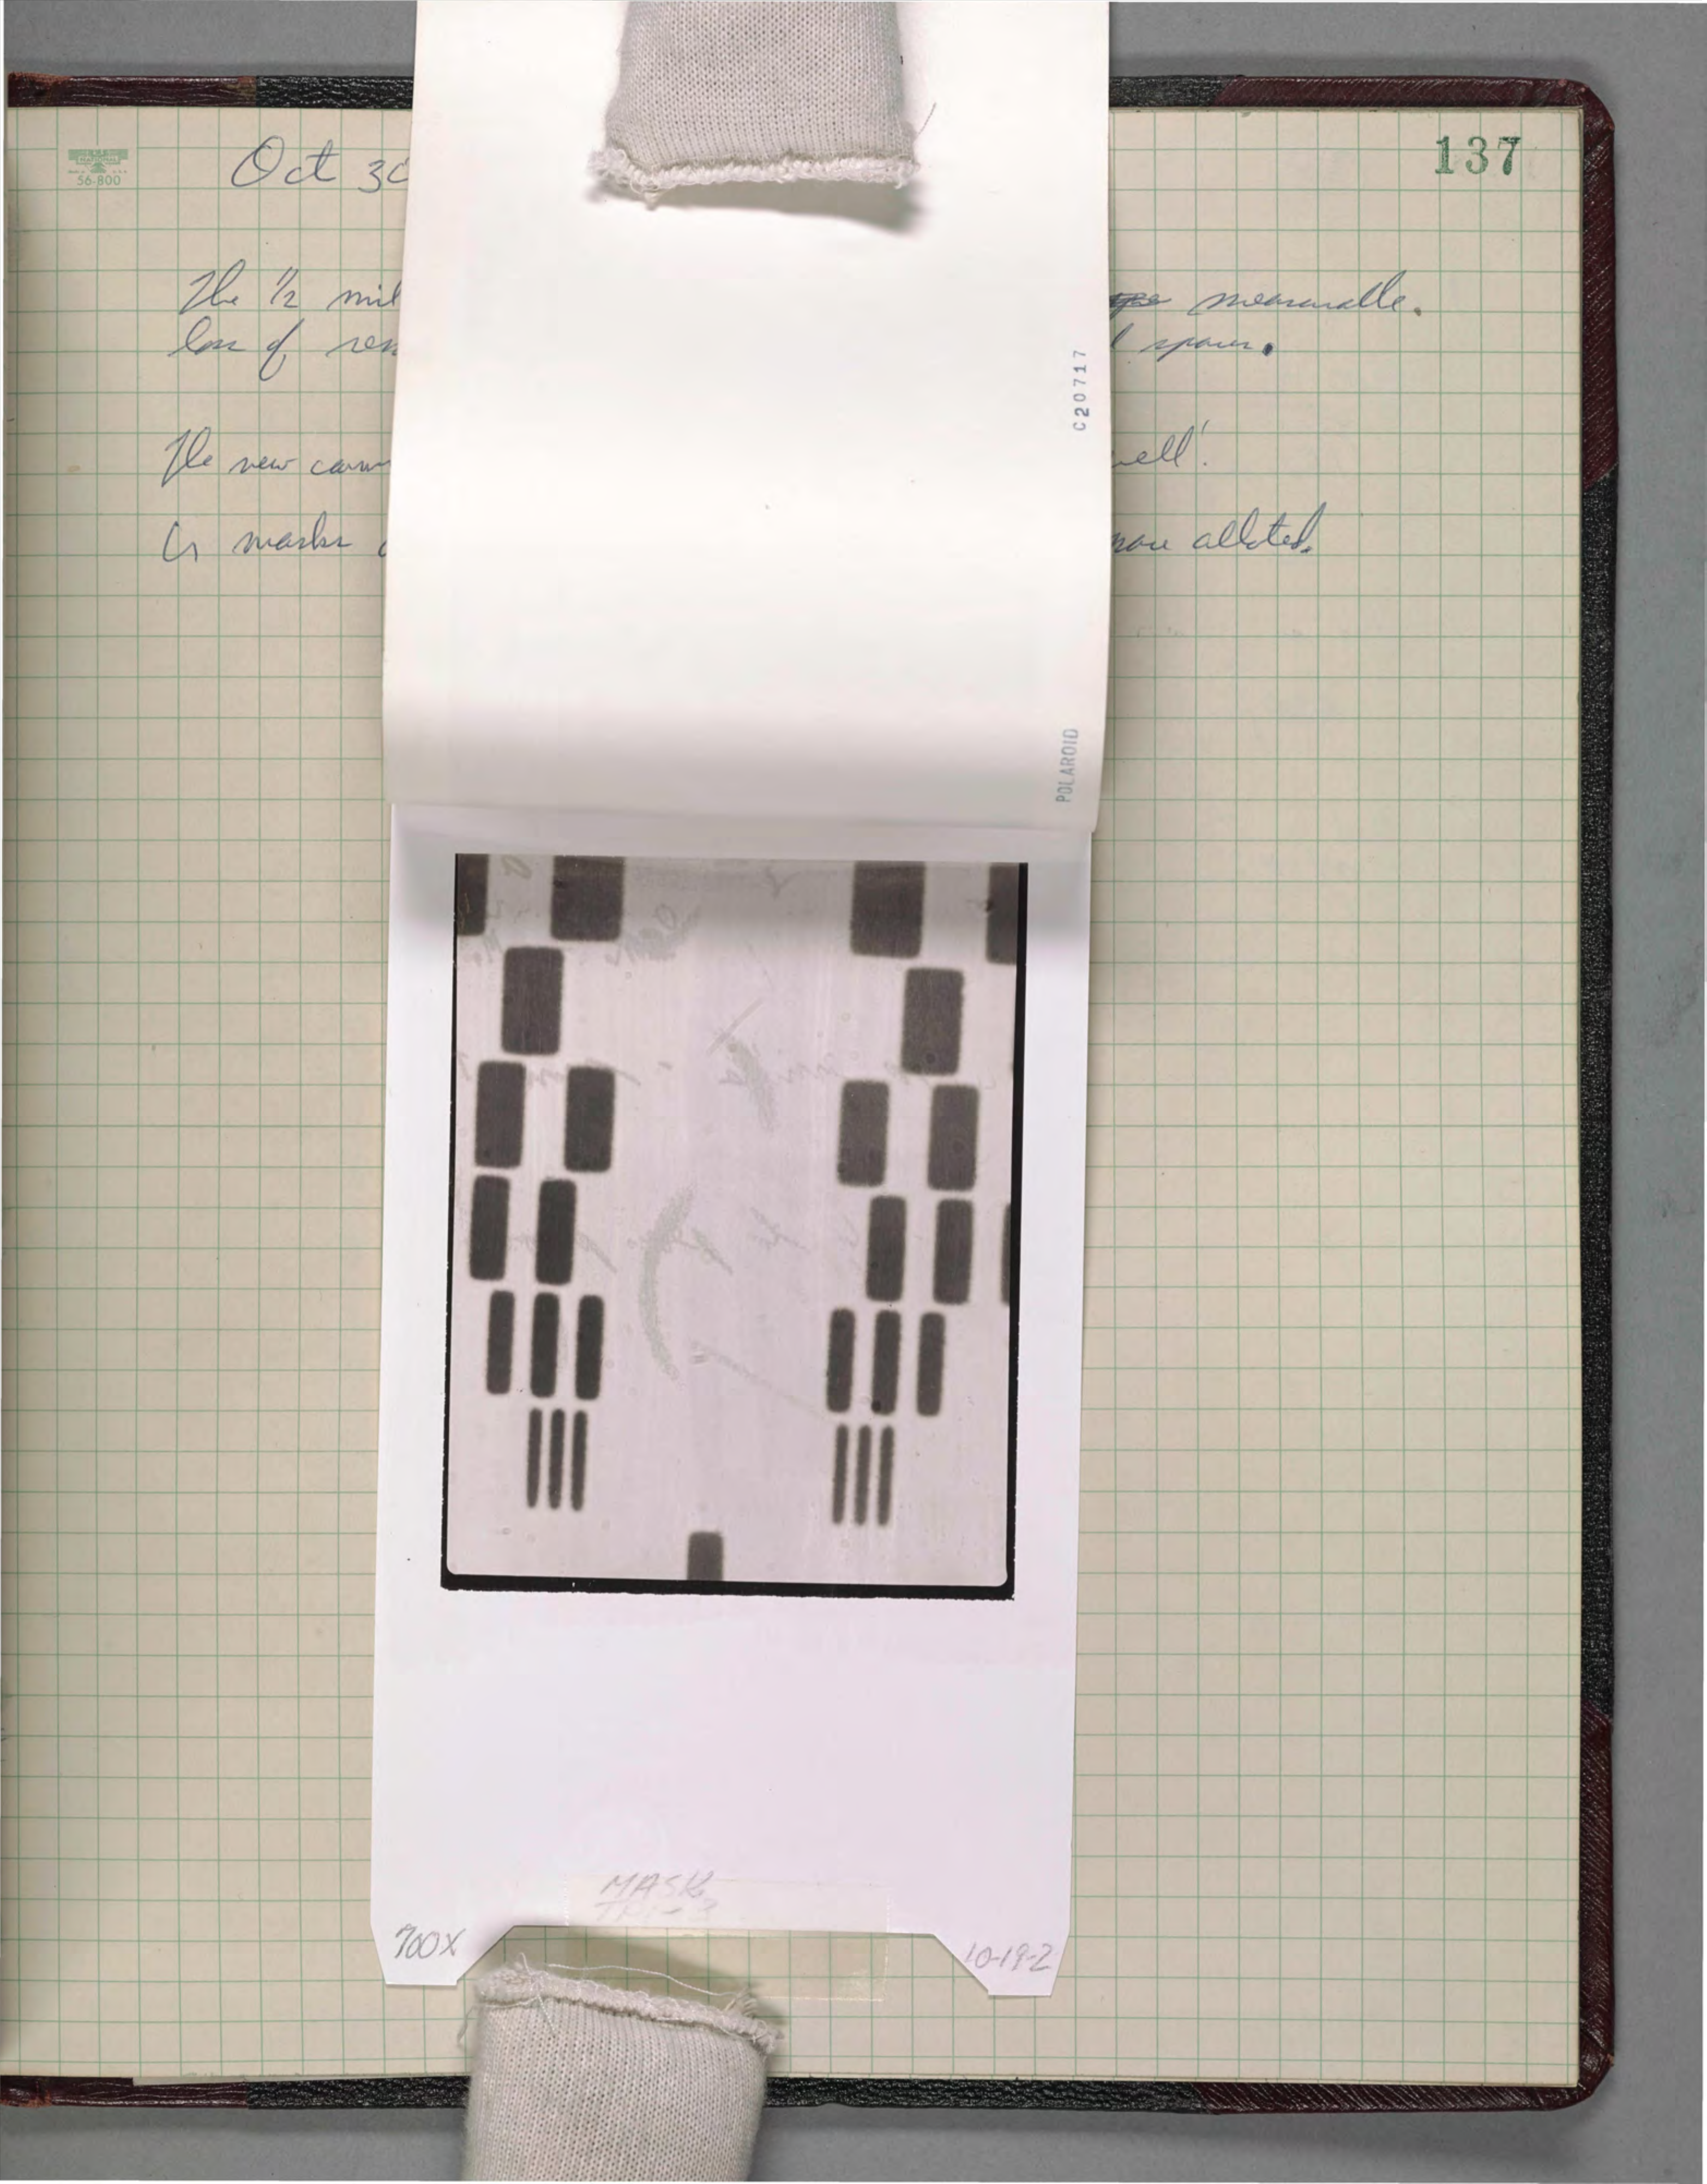 137
NATIONAL
56-800
Oct 30
The 1/2 mil measurable.
loss of res l spaces.
The new cam well!
Cr masks are alloted.
C20717
POLAROID
MASK
700X
10-19-2